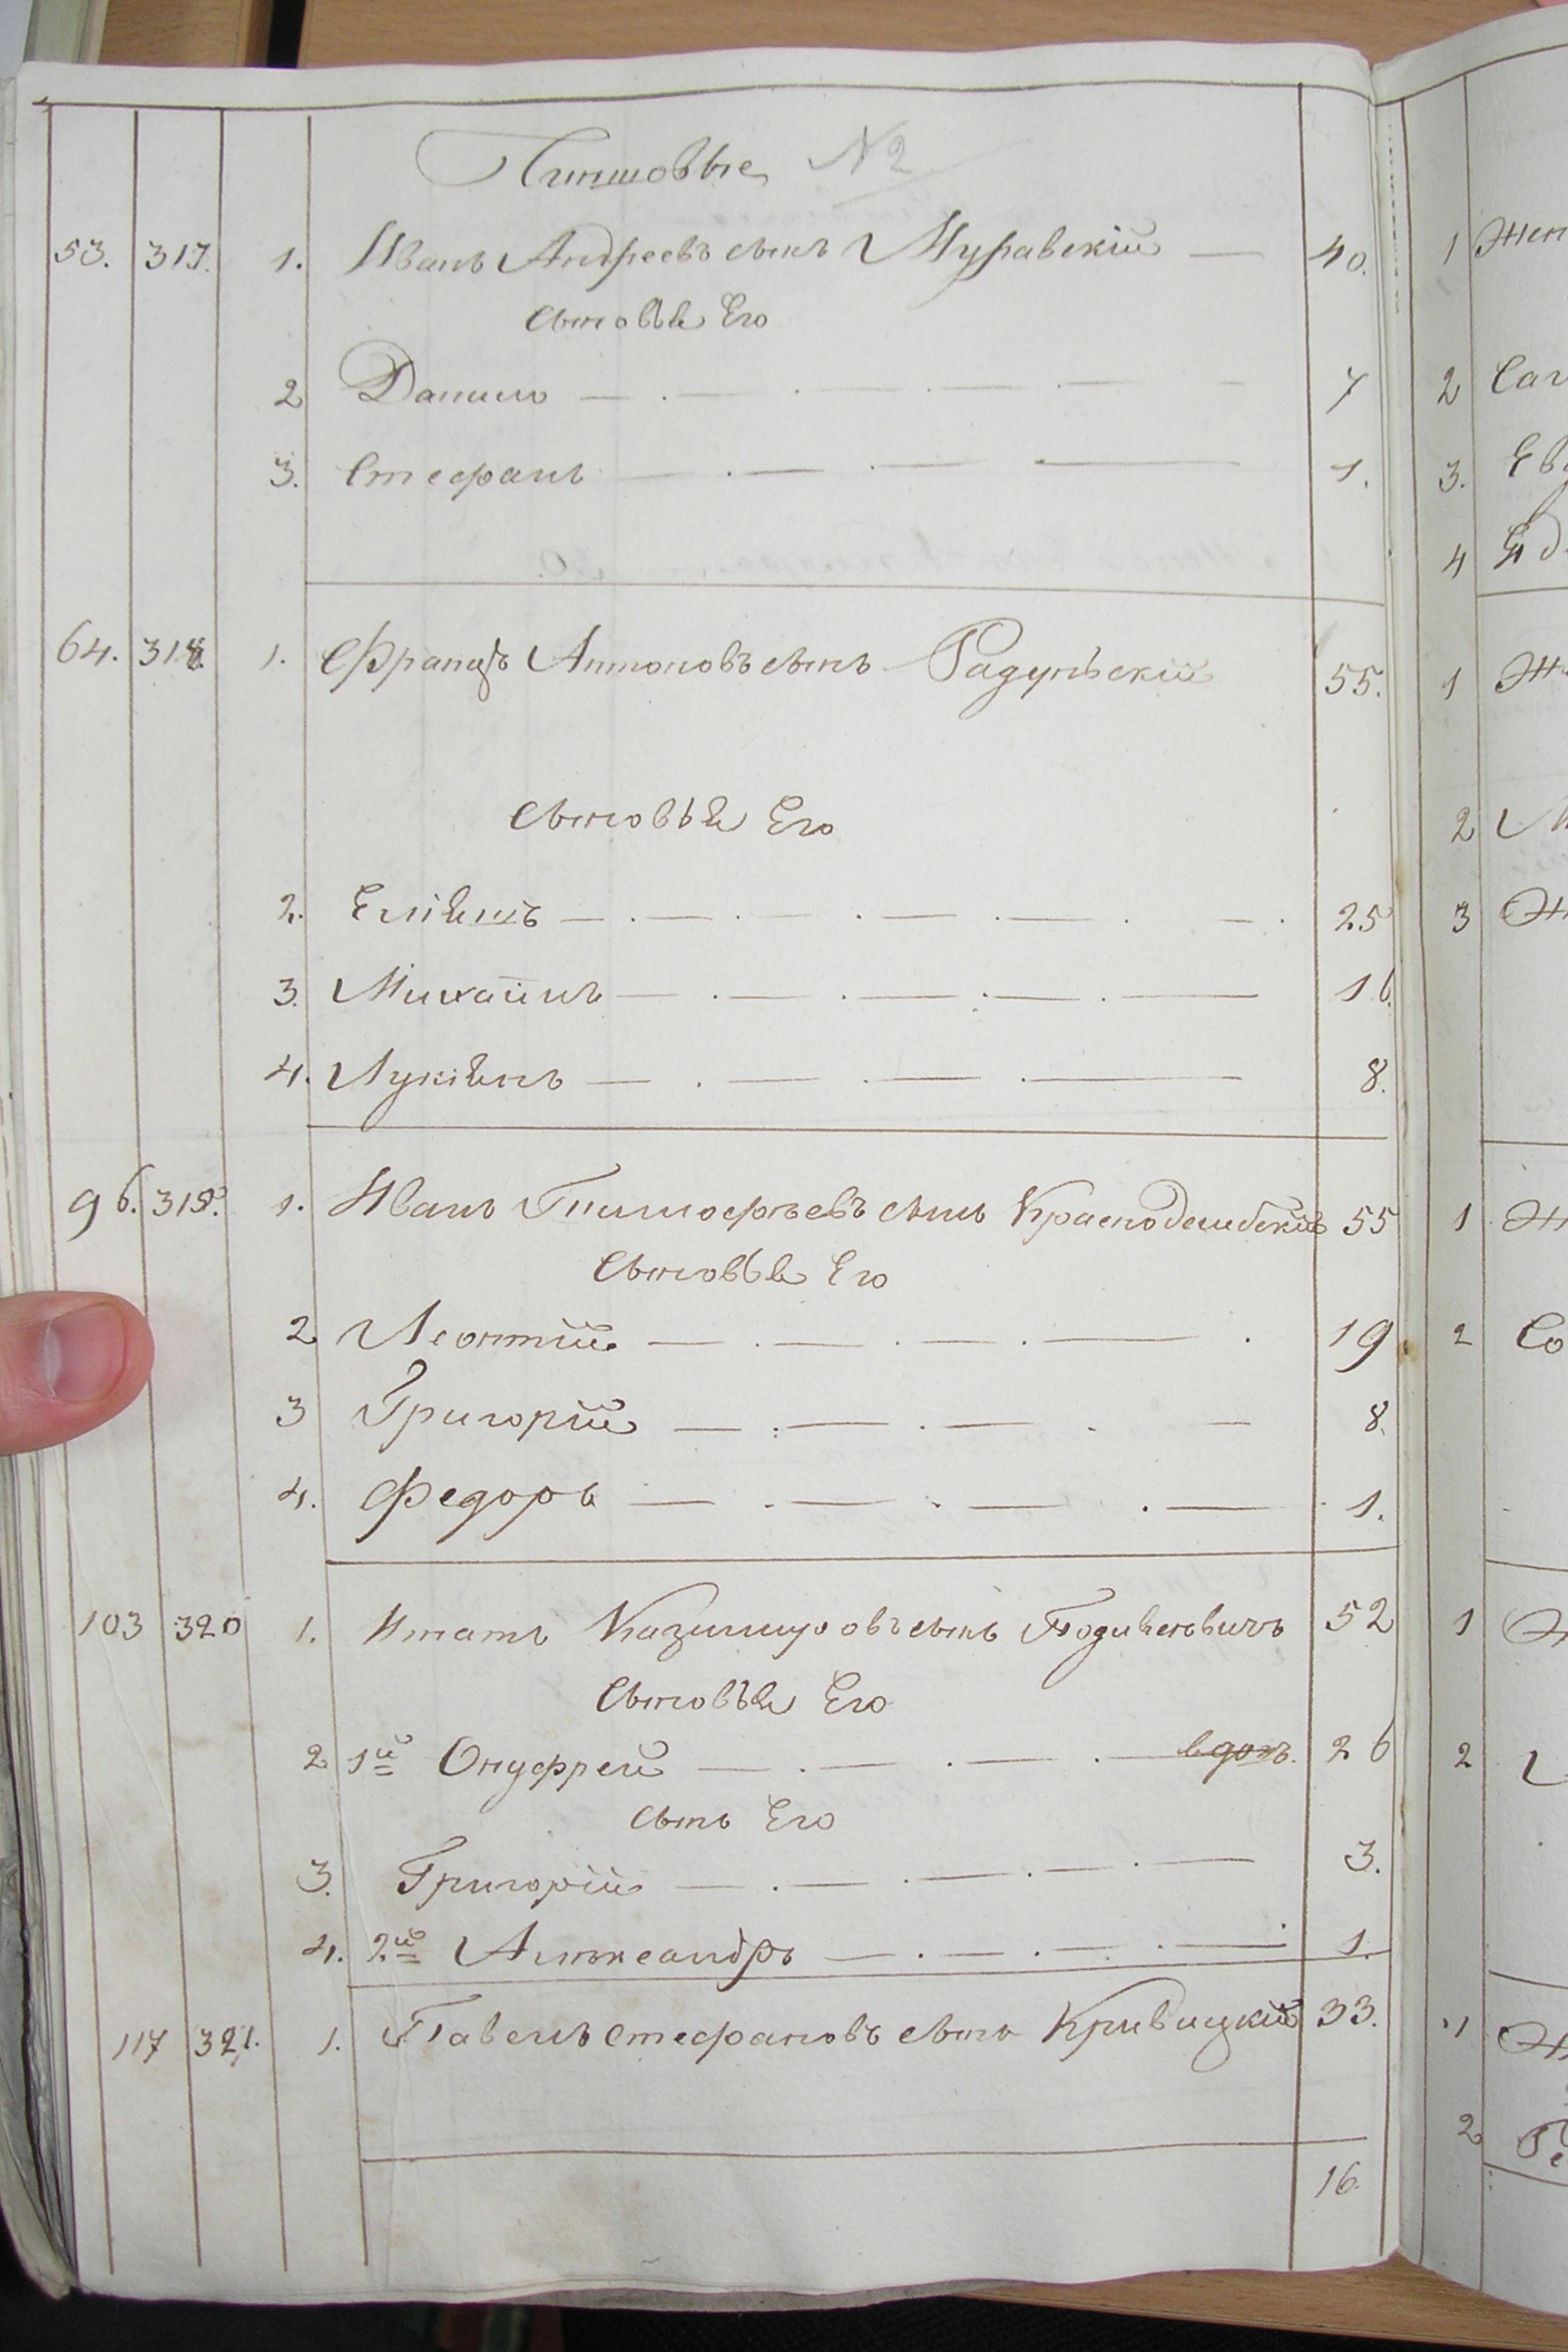 Чиншовые № 2
53. 317. 1. Иванъ Андреевъ сынъ Муравскій — 40.
сыновья Его
2 Данило — 7
3. Стефанъ — 1.
64. 318. 1. Францъ Антоновъ сынъ Радульскій 55.
сыновья Его
2. Еліяшъ — 25
3. Михайлъ — 16.
4. Лукіянъ — 8.
96. 319. 1. Иванъ Тимофѣевъ сынъ 55
Сыновья Его
2 Леонтій — 19
3 Григорій — 8.
4. Федоръ — 1.
103 320 1. Игнатъ Казимировъ сынъ 52
Сыновья Его
2 1й Онуфрей — вдовъ. 26
сынъ Его
3. Григорій — 3.
4. 2й Александръ — 1.
117 321. 1. Павелъ Стефановъ сынъ Кривицкій 33.
16.
1 Жен
2
3. Ев
4
1 Ж
2
3
1
2 Со
1
2
1
2